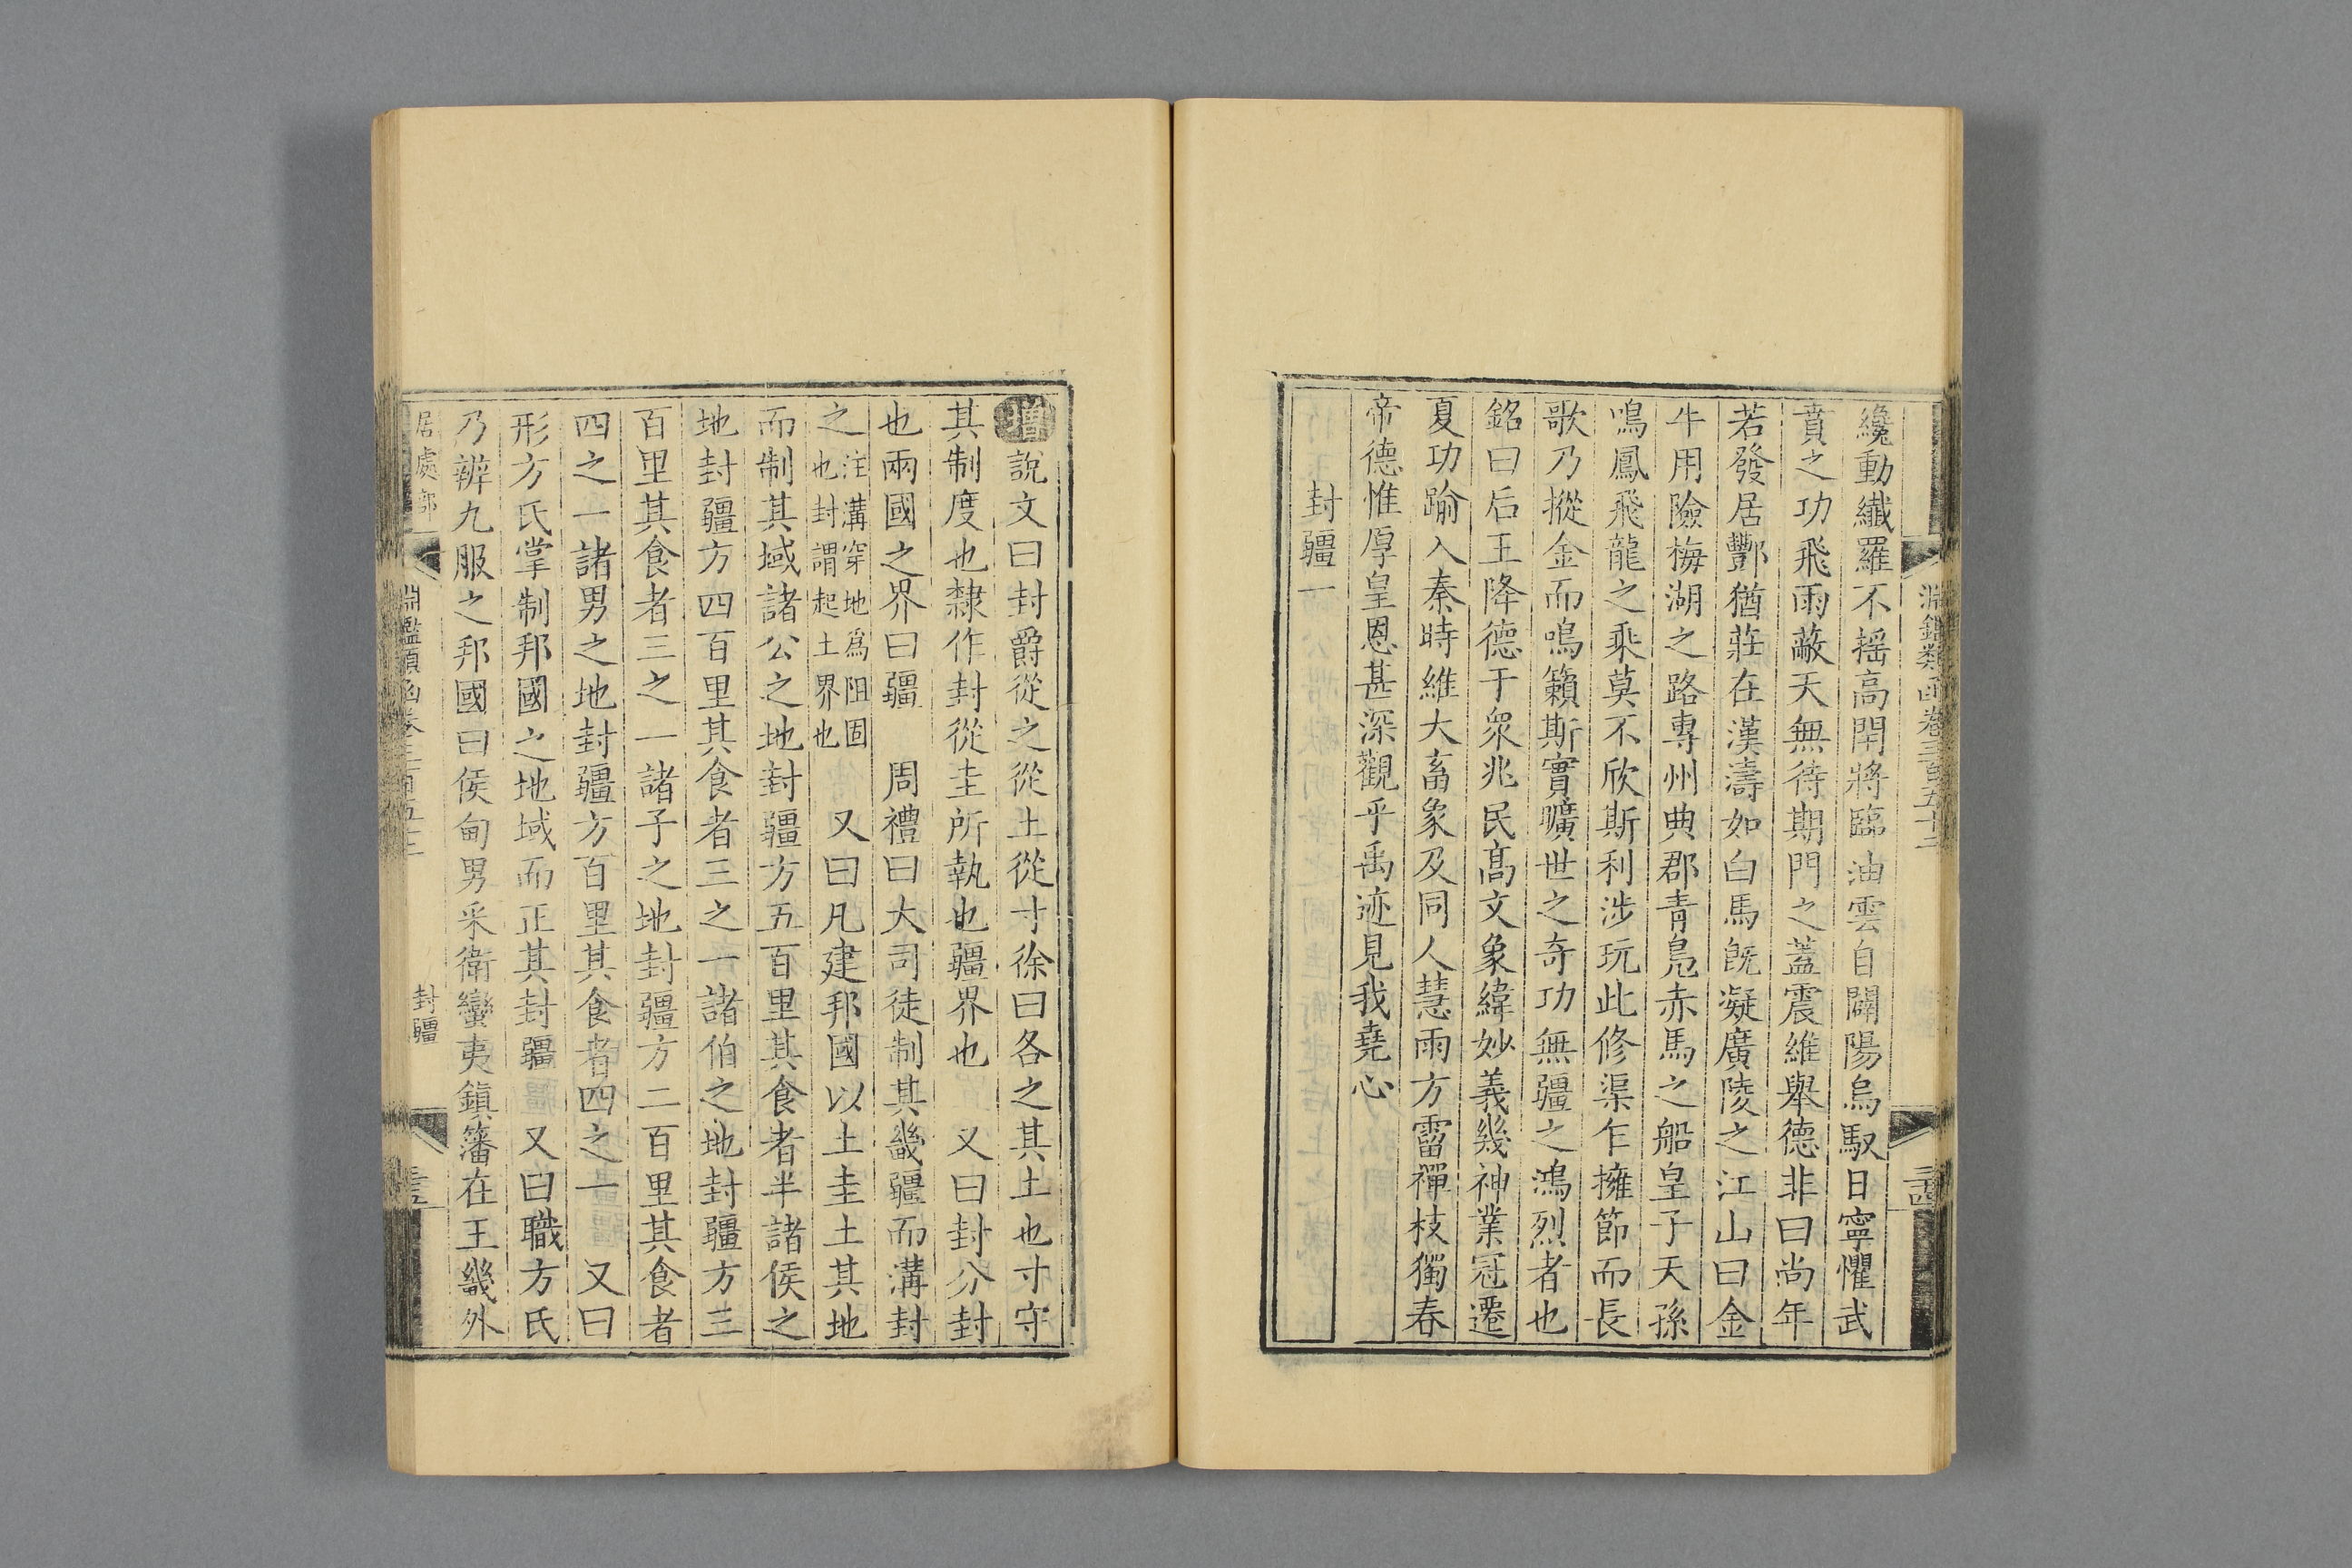 淵鑑類函卷三百五十三
纔動纖羅不揺高閈將臨油雲自闢陽烏馭日寧懼武
賁之功飛雨蔽天無待期門之蓋震維舉德非曰尚年
若發居酆猶莊在漢濤如白馬旣凝廣陵之江山曰金
牛用險梅湖之路專州典郡青鳧赤馬之船皇子天孫
鳴鳳飛龍之乘莫不欣斯利涉玩此修渠乍擁節而長
歌乃摐金而鳴籟斯實曠世之奇功無疆之鴻烈者也
銘曰后王降德于衆兆民高文象緯妙義幾神業冠遷
夏功踰入秦時維大畜象及同人慧雨方霤禪枝獨春
帝德惟厚皇恩甚深觀乎禹迹見我堯心
封疆一
增說文曰封爵從之從土從寸徐曰各之其土也寸守
其制度也隸作封從圭所執也疆界也 又曰封介封
也兩國之界曰疆 周禮曰大司徒制其畿疆而溝封
之注溝穿地爲阻固也封謂起土界也 又曰凡建邦國以土圭土其地
而制其域諸公之地封疆方五百里其食者半諸侯之
地封疆方四百里其食者三之一諸伯之地封疆方三
百里其食者三之一諸子之地封疆方二百里其食者
四之一諸男之地封疆方百里其食者四之一 又曰
形方氏掌制邦國之地域而正其封疆 又曰職方氏
乃辨九服之邦國曰侯甸男采衛蠻夷鎮籓在王畿外
居處部 淵鑑類函卷三百五十三 封疆